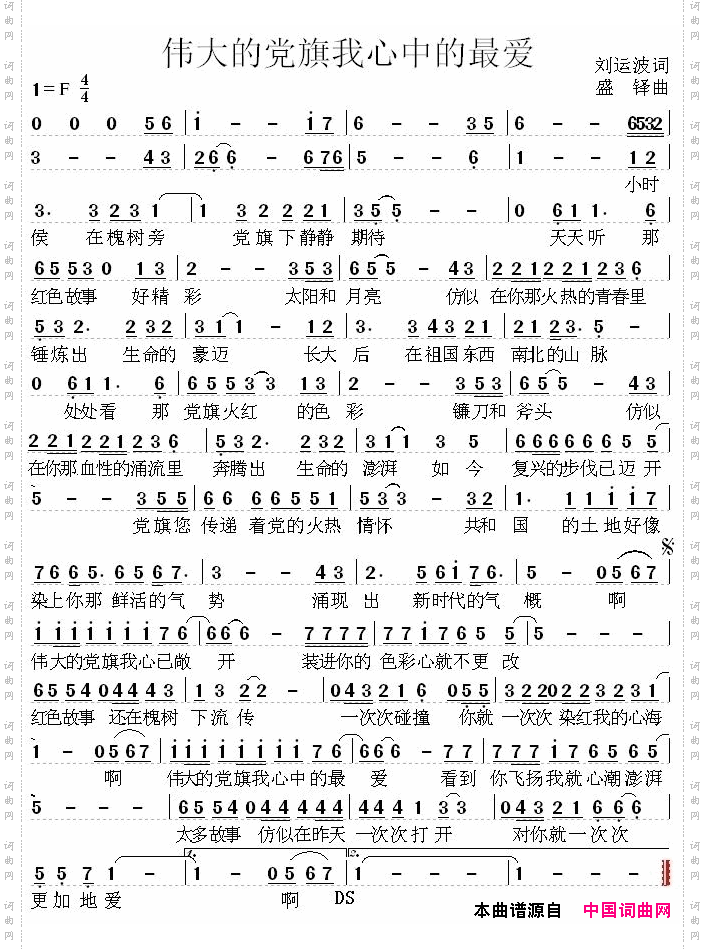 伟大的党旗我心中的最爱
刘运波词
1=F 4/4
盛 铎曲
0 0 0 5 6 | i - - i 7 | 6 - - 3 5 | 6 - - 6532 |
3 - - 4 3 | 2 6 6 - 6 7 6 | 5 - - 6 | 1 - - 1 2 |
小时
3. 3 2 3 1 | 1 3 2 2 2 1 | 3 5 5 - - | 0 6 1 1. 6 |
侯 在槐树旁 党旗下静静 期待 天天听 那
6 5 5 3 0 1 3 | 2 - - 3 5 3 | 6 5 5 - 4 3 | 2 2 1 2 2 1 2 3 6 |
红色故事 好精 彩 太阳和 月亮 仿似 在你那火热的青春里
5 3 2. 2 3 2 | 3 1 1 - 1 2 | 3. 3 4 3 2 1 | 2 1 2 3. 5 - |
锤炼出 生命的 豪迈 长大 后 在祖国东西 南北的山 脉
0 6 1 1. 6 | 6 5 5 3 3 1 3 | 2 - - 3 5 3 | 6 5 5 - 4 3 |
处处看 那 党旗火红 的色 彩 镰刀和 斧头 仿似
2 2 1 2 2 1 2 3 6 | 5 3 2. 2 3 2 | 3 1 1 3 3 5 | 6 6 6 6 6 6 6 5 5 |
在你那血性的涌流里 奔腾出 生命的 澎湃 如今 复兴的步伐已迈开
5 - - 3 5 5 | 6 6 6 6 7 6 5 | 5 3 3 - 3 2 | 1. 1 1 1 i 7 |
党旗您 传递 着党的火热 情怀 共和 国 的土地好像
7 6 6 5. 6 5 6 7. | 3 - - 4 3 | 2. 5 6 i 7 6. | 5 - 0 5 6 7 |
染上你那 鲜活的气 势 涌现 出 新时代的气 概 啊
i i i i i i i 7 6 | 6 6 6 - - | 7 7 7 7 7 6 7 6 5 5 | 5 - - - |
伟大的党旗我心已敞 开 装进你的 色彩心就不更 改
6 5 5 4 0 4 4 4 3 | 1 3 2 2 - | 0 4 3 2 1 6 0 5 5 | 3 2 2 0 2 2 3 3 2 1 |
红色故事 还在槐树 下流传 一次次碰撞 你就 一次次 染红我的心海
1 - 0 5 6 7 | i i i i i i i i 7 6 | 6 6 6 - 7 7 | 7 7 7 7 6 7 6 5 5 |
啊 伟大的党旗我心中的最 爱 看到 你飞扬我就心潮澎湃
5 - - - | 6 5 5 4 0 4 4 4 4 4 | 4 4 4 1 3 3 | 0 4 3 2 1 6 6 6 |
太多故事 仿似在昨天 一次次打开 对你就一次次
5 5 7 1 - | 1. 1 - 0 5 6 7 | 2. 1 - - - | 1 - - - |
更加地爱 啊 DS
本曲谱源自 中国词曲网